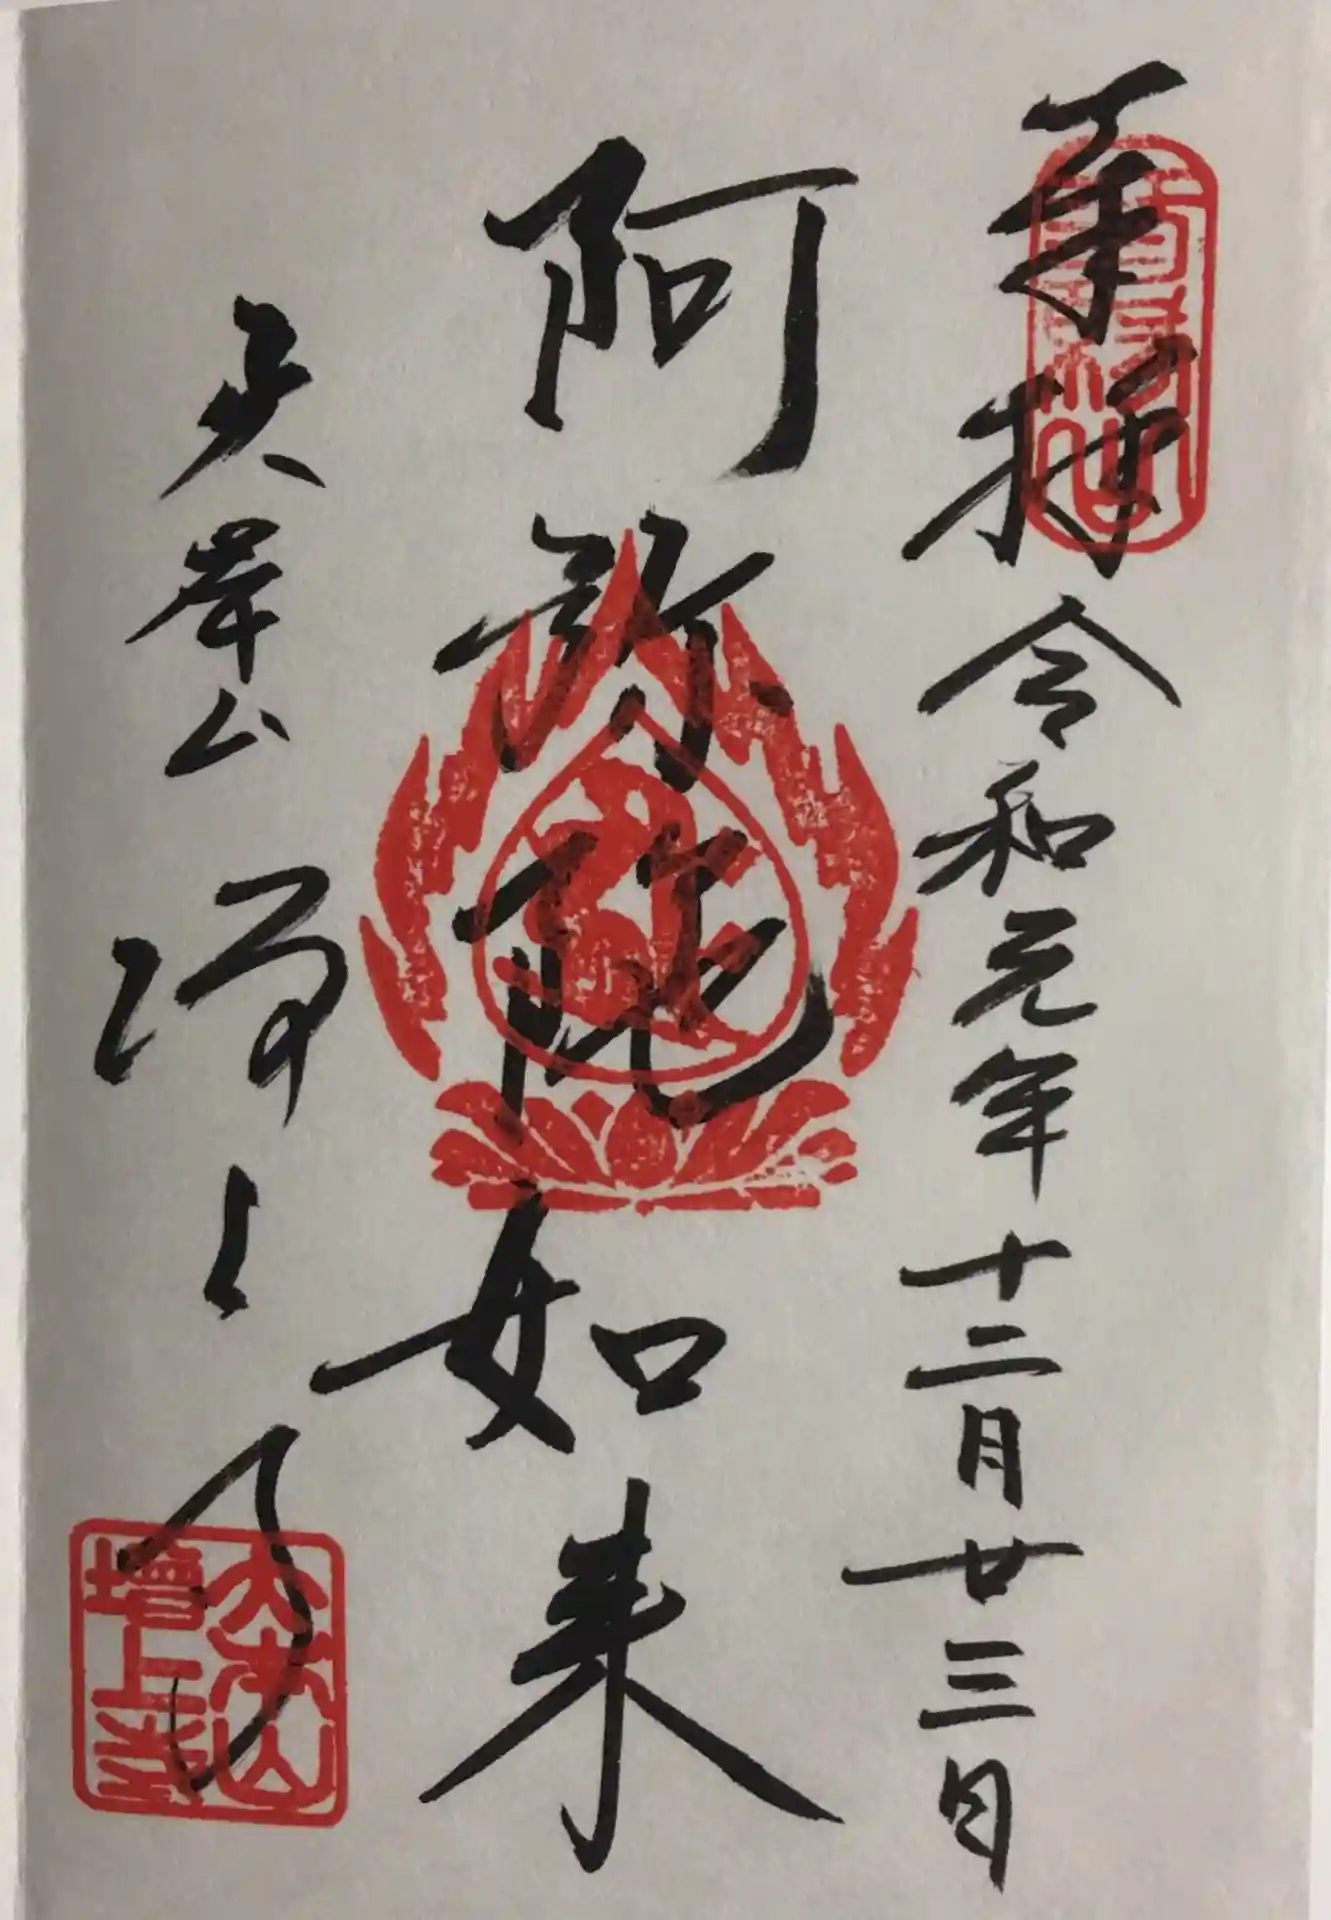 奉拝 令和元年十二月廿三日
阿弥陀如来
山 増上寺
大本山
增上寺